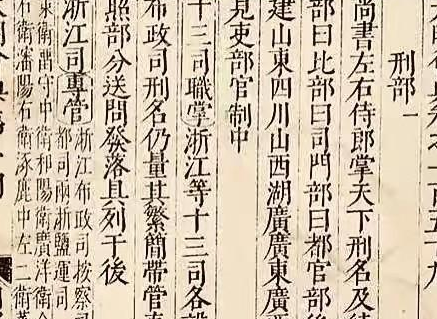 之一百五十九
刑部一
尚書左右侍郎掌天下刑名及
部曰比部曰司門部曰都官部後
建山東四川山西湖廣廣東廣西
見吏部官制中
十三司職掌浙江等十三司各設
布政司刑名仍量其繁簡帶管
照部分送問發落具列于後
浙江司專管
浙江布政司按察司
都司兩浙鹽運司
衛留守中衛和陽衛廣洋衛
右衛瀋陽右衛涿鹿中左二衛